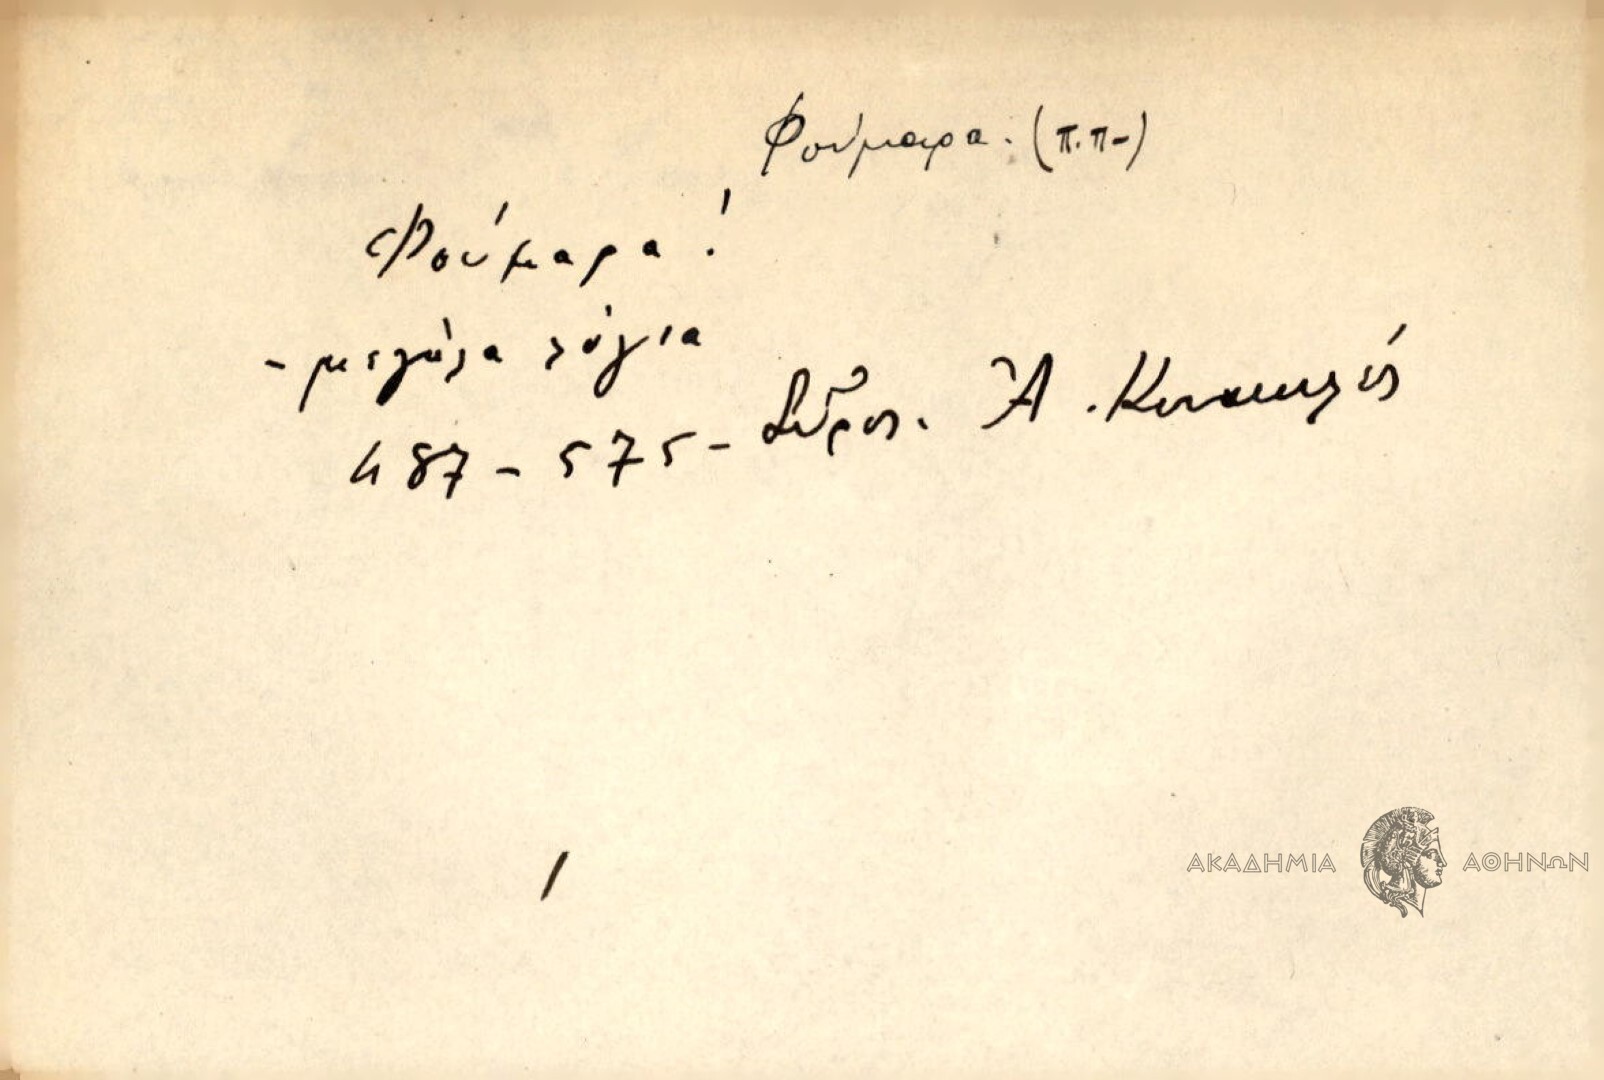 Φούμαρα. (π.π-)
Φούμαρα!
- μεγάλα λόγια
487 - 575 - Σῦρος. Ἀ.
ΑΚΑΔΗΜΙΑ ΑΘΗΝΩΝ